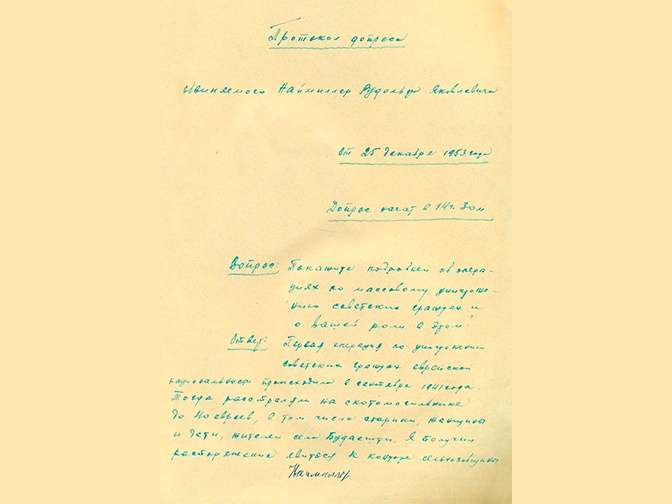 Протокол допроса
обвиняемого Наймиллер Рудольфа Яковлевича
от 25 декабря 1953 года
Допрос начат в 14 ч. 30 м
Вопрос: Покажите подробней об опера-
циях по массовому уничтоже-
нию советских граждан и
о вашей роли в этом?
Ответ: Первая операция по уничтожению
советских граждан еврейской
национальности происходила в сентябре 1941 года.
Тогда расстреляли на скотомогильнике
до евреев, в том числе старики, женщины
и дети, жители села. Я получил
распоряжение явиться к конторе
Наймиллер